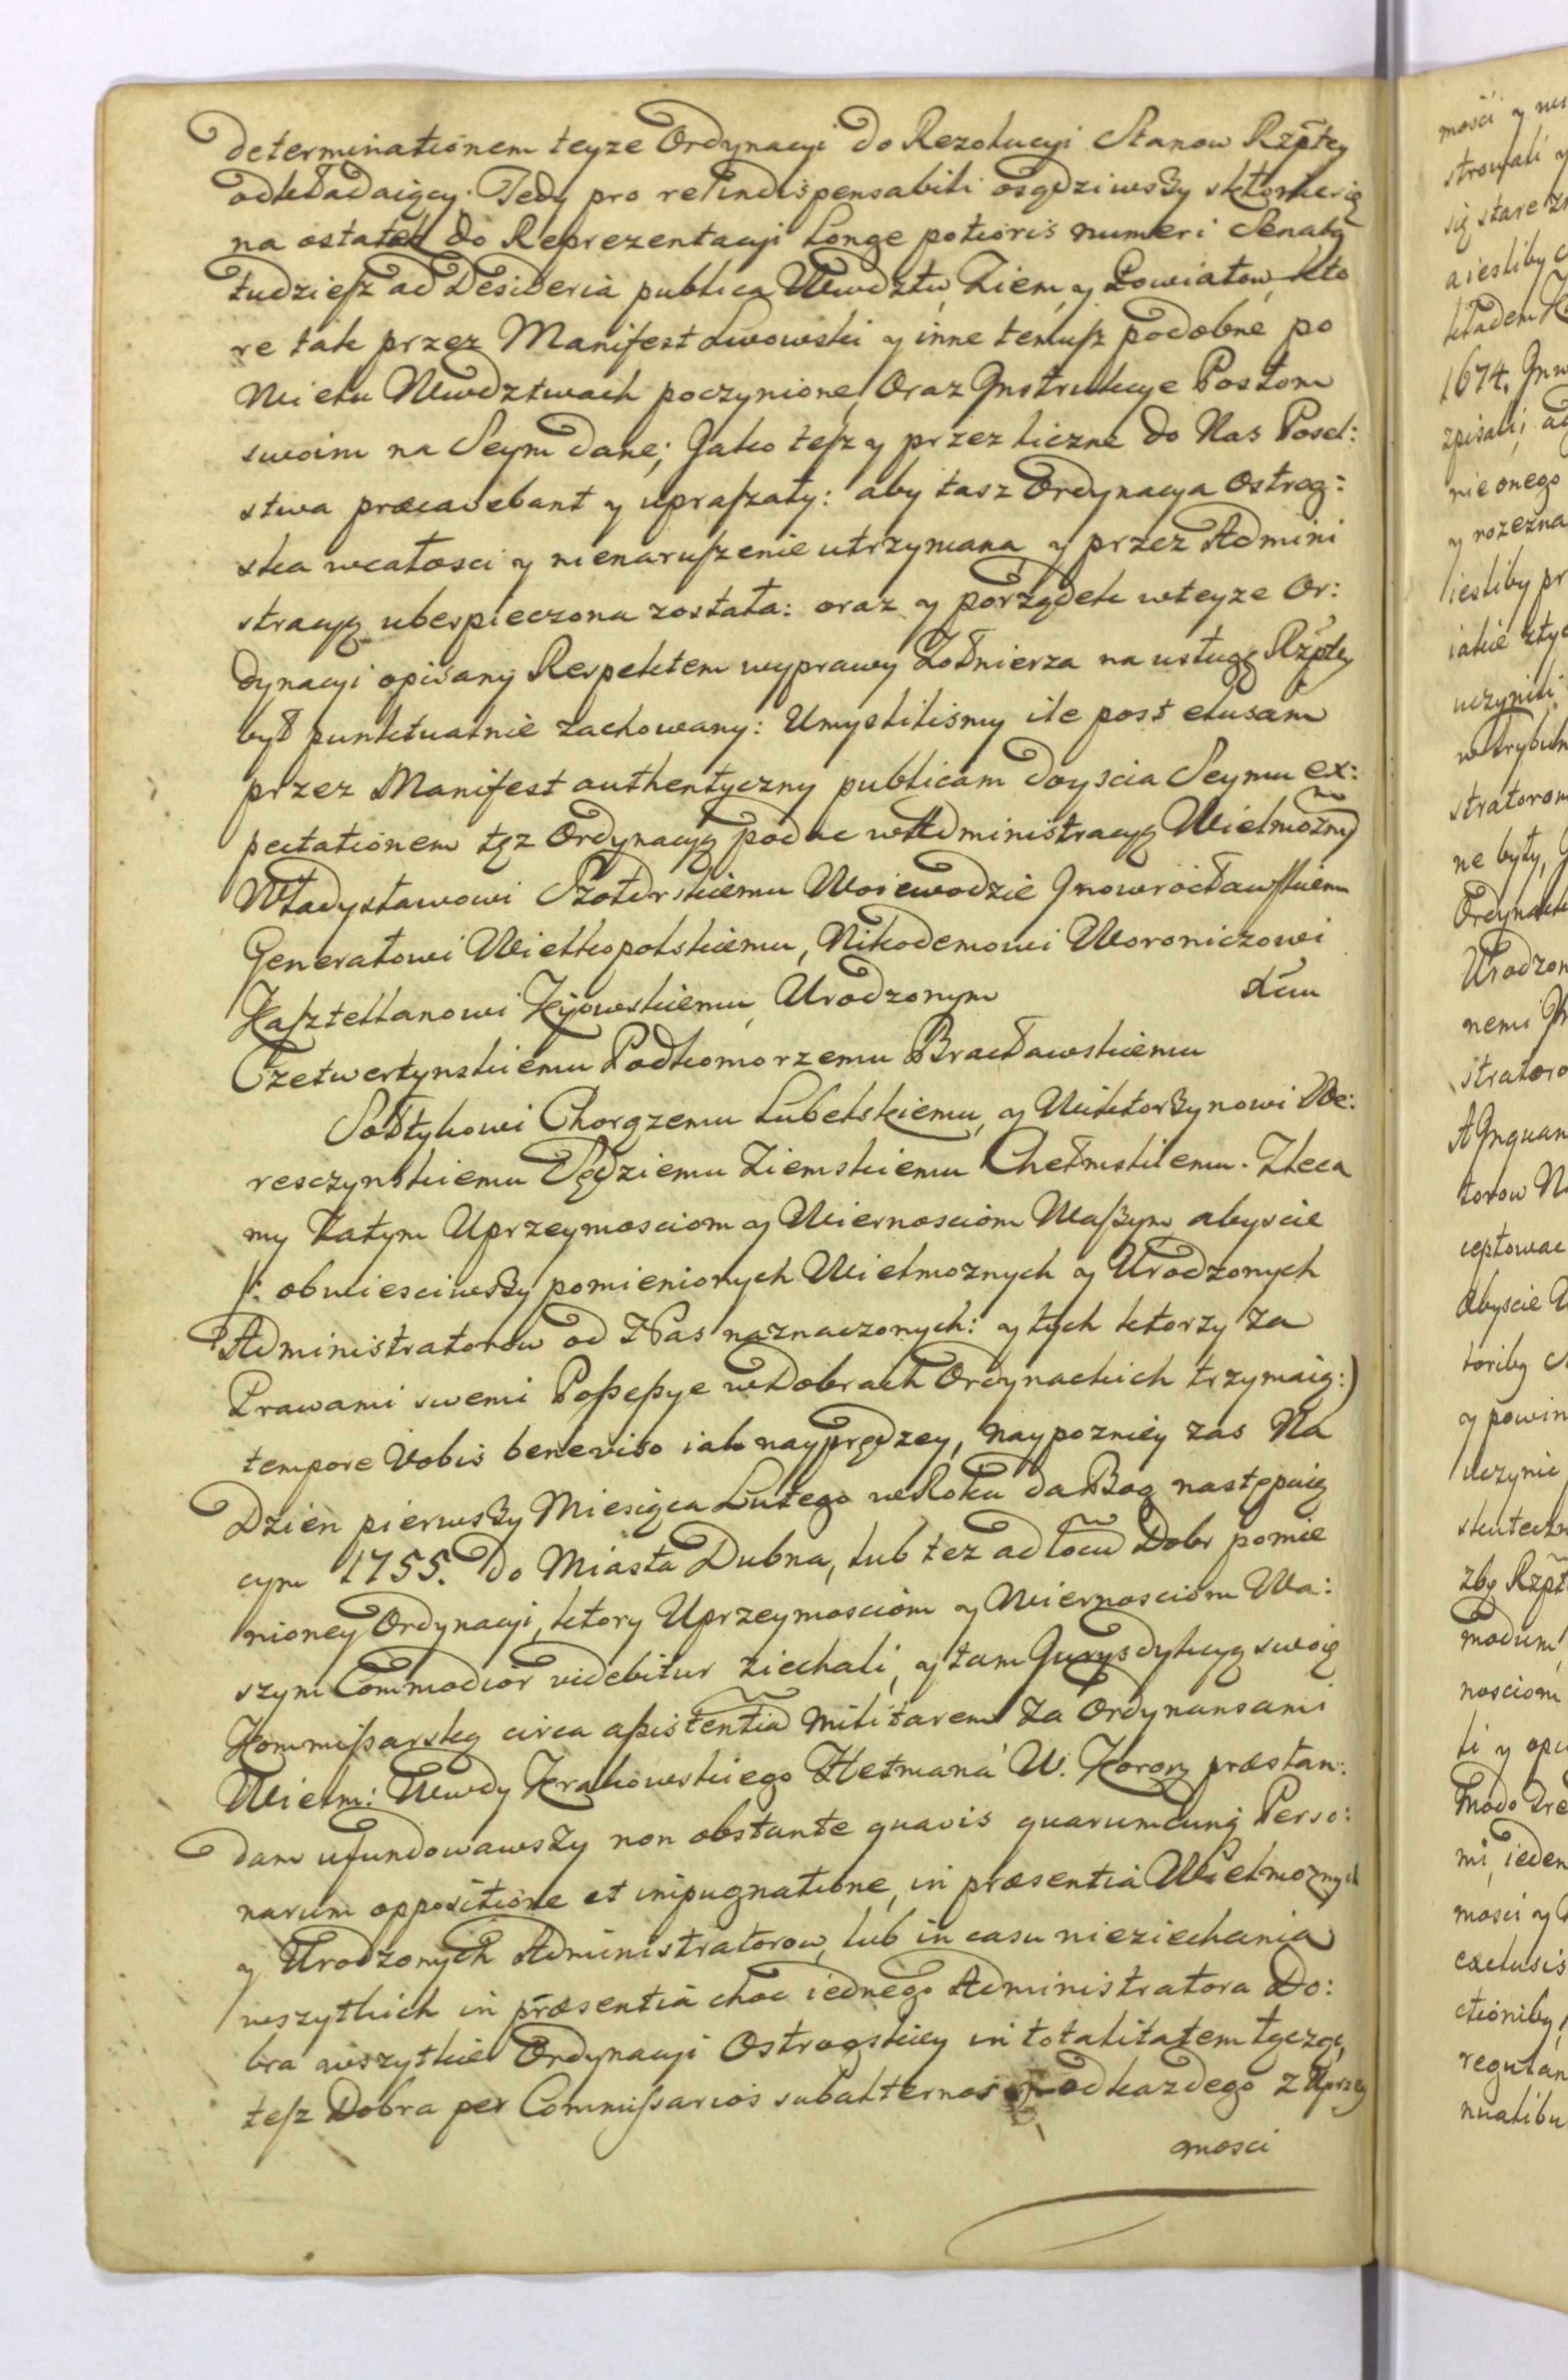 determinationem teyze Ordynacyi do Rezolucyi Stanow Rzptey
odkładaiący. Tedy pro re indispensabili osądziwszy skłonić się
na ostatek do Reprezentacyi longe potioris numeri Senatu
tudziesz ad Desideria publica Wwdztw, Ziem, y Powiatow, kto
re tak przez Manifest Lwowski y inne temusz podobne po
Wielu Wwdztwach poczynione, Oraz Jnstrukcye Posłom
swoim na Seym dane; Jako tesz y przez liczne do Nas Posel:
stwa præcavebant y upraszały: aby tasz Ordynacya Ostrog:
ska wcałosci y nienaruszenie utrzymana y przez Admini
stracyą ubespieczona została: oraz y porządek wteyze Or:
dynacyi opisany Respektem wyprawy Żołnierza na usługę Rzptey
był punktualnie zachowany: Umyslilismy ile post elusam
przez Manifest authentyczny publicam doyscia Seymu ex:
pectationem tęz Ordynacyą podac w Administracyą Wielmożnym
Władysławowi Szołdrskiemu Woiewodzie Jnowrocławskiemu
Generałowi Wielkopolskiemu, Nikodemowi Woroniczowi
Kasztellanowi Kijowskiemu, Urodzonym Xciu
Czetwertynskiemu Podkomorzemu Bracławskiemu
Sołtykowi Chorązemu Lubelskiemu, y Wiktorzynowi We:
resczynskiemu Sędziemu Ziemskiemu Chełmskiemu. Zleca
my Zatym Uprzeymosciom y Wiernosciom Waszym abyscie
/: obwiesciwszy pomienionych Wielmoznych y Urodzonych
Administratorow od Nas naznaczonych: y tych ktorzy za
Prawami swemi Possessye w Dobrach Ordynackich trzymaią:)
tempore Vobis beneviso iak nayprędzey, naypozniey zas Na
Dzien pierwszy Miesiąca Lutego w Roku da Bog następuią
cym 1755. do Miasta Dubna, lub tez ad locũ Dobr pomie
nioney Ordynacyi, ktory Uprzeymosciom y Wiernosciom Wa:
szym Commodior videbitur ziechali, y tam Jurysdykcyą swoię
Kommissarską circa assistentiã militarem za Ordynansami
Wielm: Wwdy Krakowskiego Hetmana W. Koron: præstan:
dam ufundowawszy non obstante quavis quarumcunq Perso:
narum oppositione et inpugnatione, in præsentia Wielmoznych
y Urodzonych Administratorow, lub in casu nieziechania
wszytkich in præsentia choc iednego Administratora Do:
bra wszytkie Ordynacyi Ostrogskiey in totalitatem
tesz Dobra per Commissarios subalternos od kazdego z Uprzey
mosci